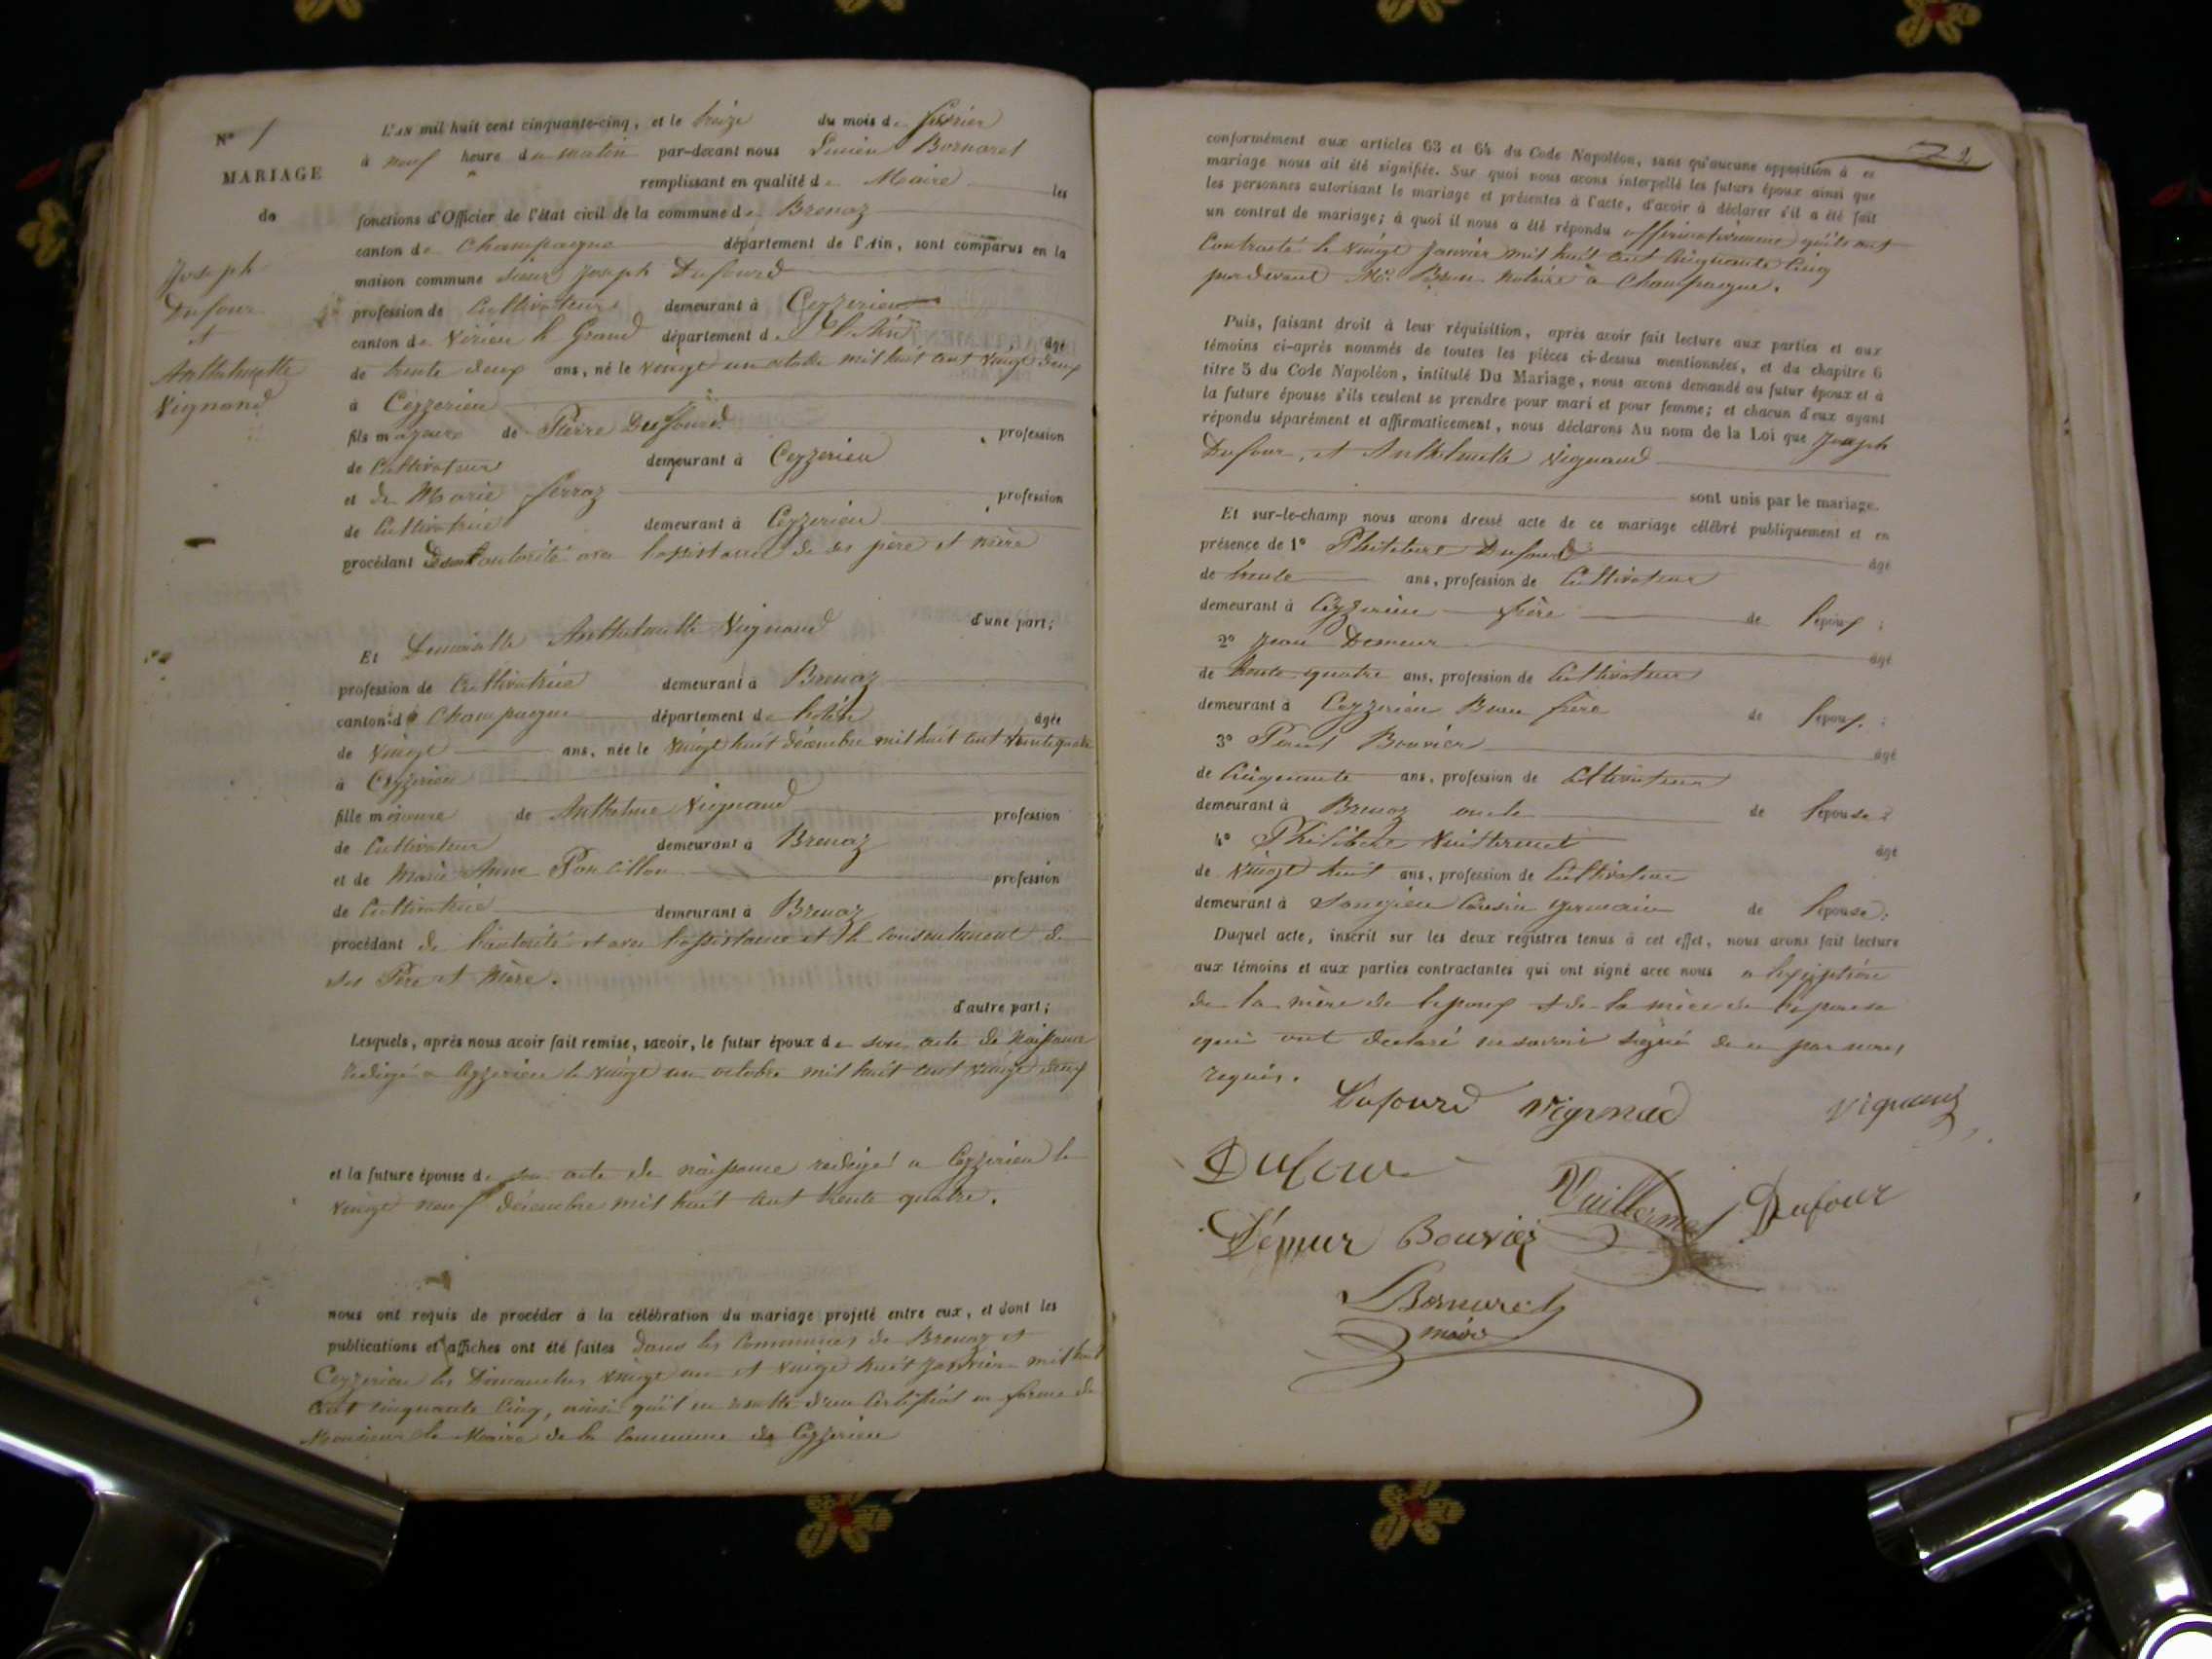 N° 1
MARIAGE
de
Joseph
Dufour
et
Anthelmette
Vignand
L'AN mil huit cent cinquante-cinq, et le treize du mois de février
à neuf heure du matin par-devant nous Lucien Bornaret
remplissant en qualité de Maire les
fonctions d'Officier de l'état civil de la commune de Brenaz
canton de Champagne département de l'Ain, sont comparus en la
maison commune sieur Joseph Dufourd
profession de Cultivateur demeurant à Ceyzerieu
canton de Virieu le Grand département de l'Ain âgé
de trente deux ans, né le vingt un octobre mil huit cent vingt deux
à Ceyzerieu
fils majeure de Pierre Dufourd profession
de Cultivateur demeurant à Ceyzerieu
et de Marie ferraz profession
de Cultivatrice demeurant à Ceyzerieu
procédant de son autorité avec l'assistance de ses père et mère
d'une part;
Et Demoiselle Anthelmette Vignand
profession de Cultivatrice demeurant à Brenaz
canton de Champagne département de l'Ain âgée
de vingt ans, née le vingt huit décembre mil huit cent trente quatre
à Ceyzerieu
fille mineure de Anthelme Vignand profession
de Cultivateur demeurant à Brenaz
et de Marie Anne Poncillon profession
de Cultivatrice demeurant à Brenaz
procédant de l'autorité et avec l'assistance et le consentement de
ses Père et Mère.
d'autre part;
Lesquels, après nous avoir fait remise, savoir, le futur époux de son acte de naissance
redigé a Ceyzerieu le vingt un octobre mil huit cent vingt deux
et la future épouse de son acte de naissance redigé a Ceyzerieu le
vingt neuf décembre mil huit cent trente quatre.
nous ont requis de procéder à la célébration du mariage projeté entre eux, et dont les
publications et affiches ont été faites dans les Communes de Brenaz et
Ceyzerieu les Dimanches vingt un et vingt huit Janvier mil huit
cent cinquante cinq, ainsi qu'il en resulte d'un Certificat en forme de
Monsieur le Maire de la Commune de Ceyzerieu
2
conformément aux articles 63 et 64 du Code Napoléon, sans qu'aucune opposition à ce
mariage nous ait été signifiée. Sur quoi nous avons interpellé les futurs époux ainsi que
les personnes autorisant le mariage et présentes à l'acte, d'avoir à déclarer s'il a été fait
un contrat de mariage; à quoi il nous a été répondu affirmativement qu'ils ont
Contracté le vingt janvier mil huit cent cinquante cinq
pardevant Me. Brun notaire a Champagne.
Puis, faisant droit à leur réquisition, après avoir fait lecture aux parties et aux
témoins ci-après nommés de toutes les pièces ci-dessus mentionnées, et du chapitre 6
titre 5 du Code Napoléon, intitulé Du Mariage, nous avons demandé au futur époux et à
la future épouse s'ils veulent se prendre pour mari et pour femme; et chacun d'eux ayant
répondu séparément et affirmativement, nous déclarons Au nom de la Loi que Joseph
Dufour, et Anthelmette Vignand
sont unis par le mariage.
Et sur-le-champ nous avons dressé acte de ce mariage célébré publiquement et en
présence de 1° Philibert Dufourd âgé
de trente ans, profession de Cultivateur
demeurant à Ceyzerieu frère de l'époux;
2° Jean Demeur âgé
de trente quatre ans, profession de Cultivateur
demeurant à Ceyzerieu Beau frère de l'époux;
3° Bouvier âgé
de Cinquante ans, profession de Cultivateur
demeurant à Brenaz oncle de l'épouse;
4° Philibert Vuillermet âgé
de vingt huit ans, profession de Cultivateur
demeurant à Songieu Cousin germain de l'épouse;
Duquel acte, inscrit sur les deux registres tenus à cet effet, nous avons fait lecture
aux témoins et aux parties contractantes qui ont signé avec nous a l'exception
de la mère de l'époux et de la mère de l'épouse
qui ont declaré ne savoir signé de ce par nous
requis.
Dufourd Vignad Vignand
Dufour
Vuillermet Dufour
Démeur Bouvier
Bornaret
maire